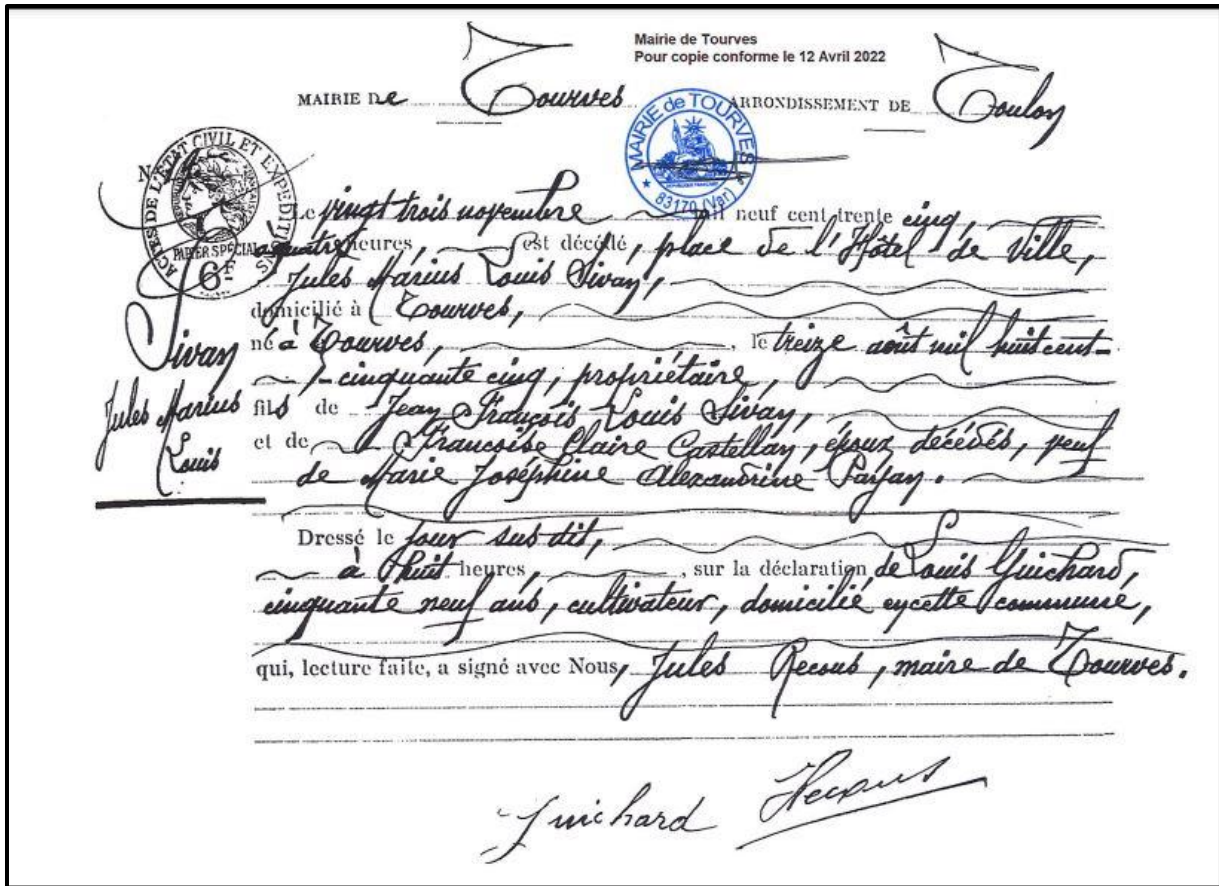 Mairie de Tourves
Pour copie conforme le 12 Avril 2022
MAIRIE De Tourves ARRONDISSEMENT DE Toulon
MAIRIE de TOURVES
RÉPUBLIQUE FRANÇAISE
83170 (Var)
ACTES DE L'ÉTAT CIVIL ET EXPÉDITIONS
PAPIER SPÉCIAL
6F
N
Le vingt trois novembre mil neuf cent trente cinq,
à quatre heures, est décédé, place de l'Hôtel de Ville,
Jules Marius Louis Sivan,
domicilié à Tourves,
Sivan
Jules Marius
Louis
né à Tourves, le treize août mil huit cent-
-cinquante cinq, propriétaire,
fils de Jean François Louis Sivan,
et de Francoise Claire Castellan, époux décédés, veuf
de Marie Joséphine Alexandrine Payan.
Dressé le jour sus dit,
à huit heures, sur la déclaration de Louis Guichard,
cinquante neuf ans, cultivateur, domicilié en cette commune,
qui, lecture faite, a signé avec Nous, Jules Recous, maire de Tourves.
Guichard Recous